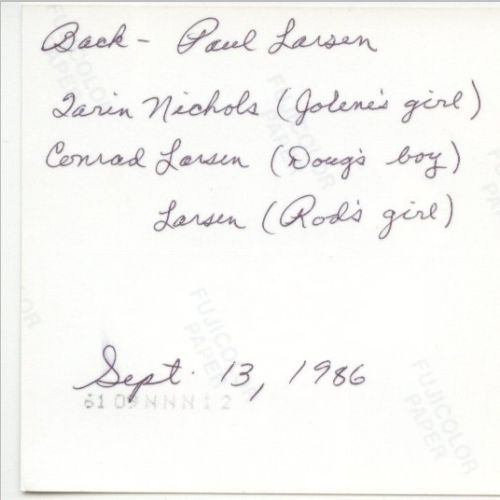 Back - Paul Larsen
Tarin Nichols (Jolene's girl)
Conrad Larsen (Doug's boy)
Larsen (Rod's girl)
Sept. 13, 1986
61 09NNN12
FUJICOLOR
PAPER
FUJICOLOR
PAPER